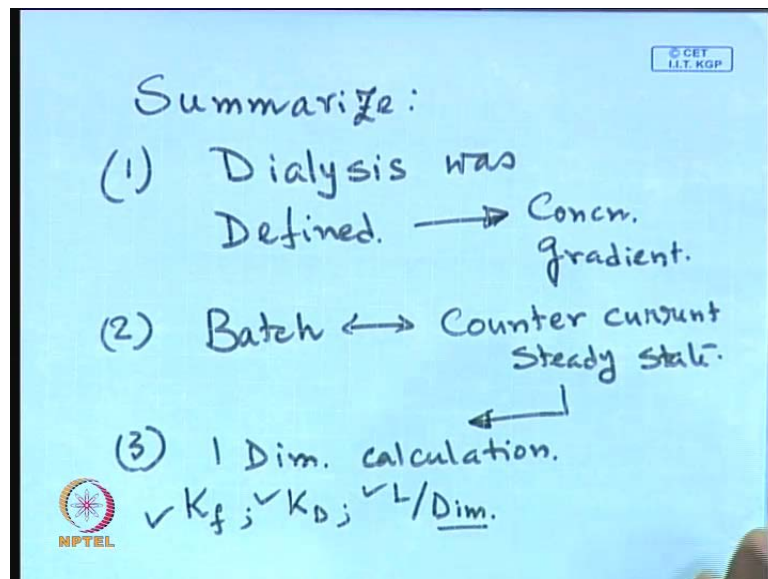 © CET
I.I.T. KGP
Summarize:
(1) Dialysis was
Defined. → Concn.
gradient.
(2) Batch ↔ Counter current
Steady state.
(3) 1 Dim. calculation.
✓ Kf ; ✓ KD ; ✓ L/Dim.
NPTEL